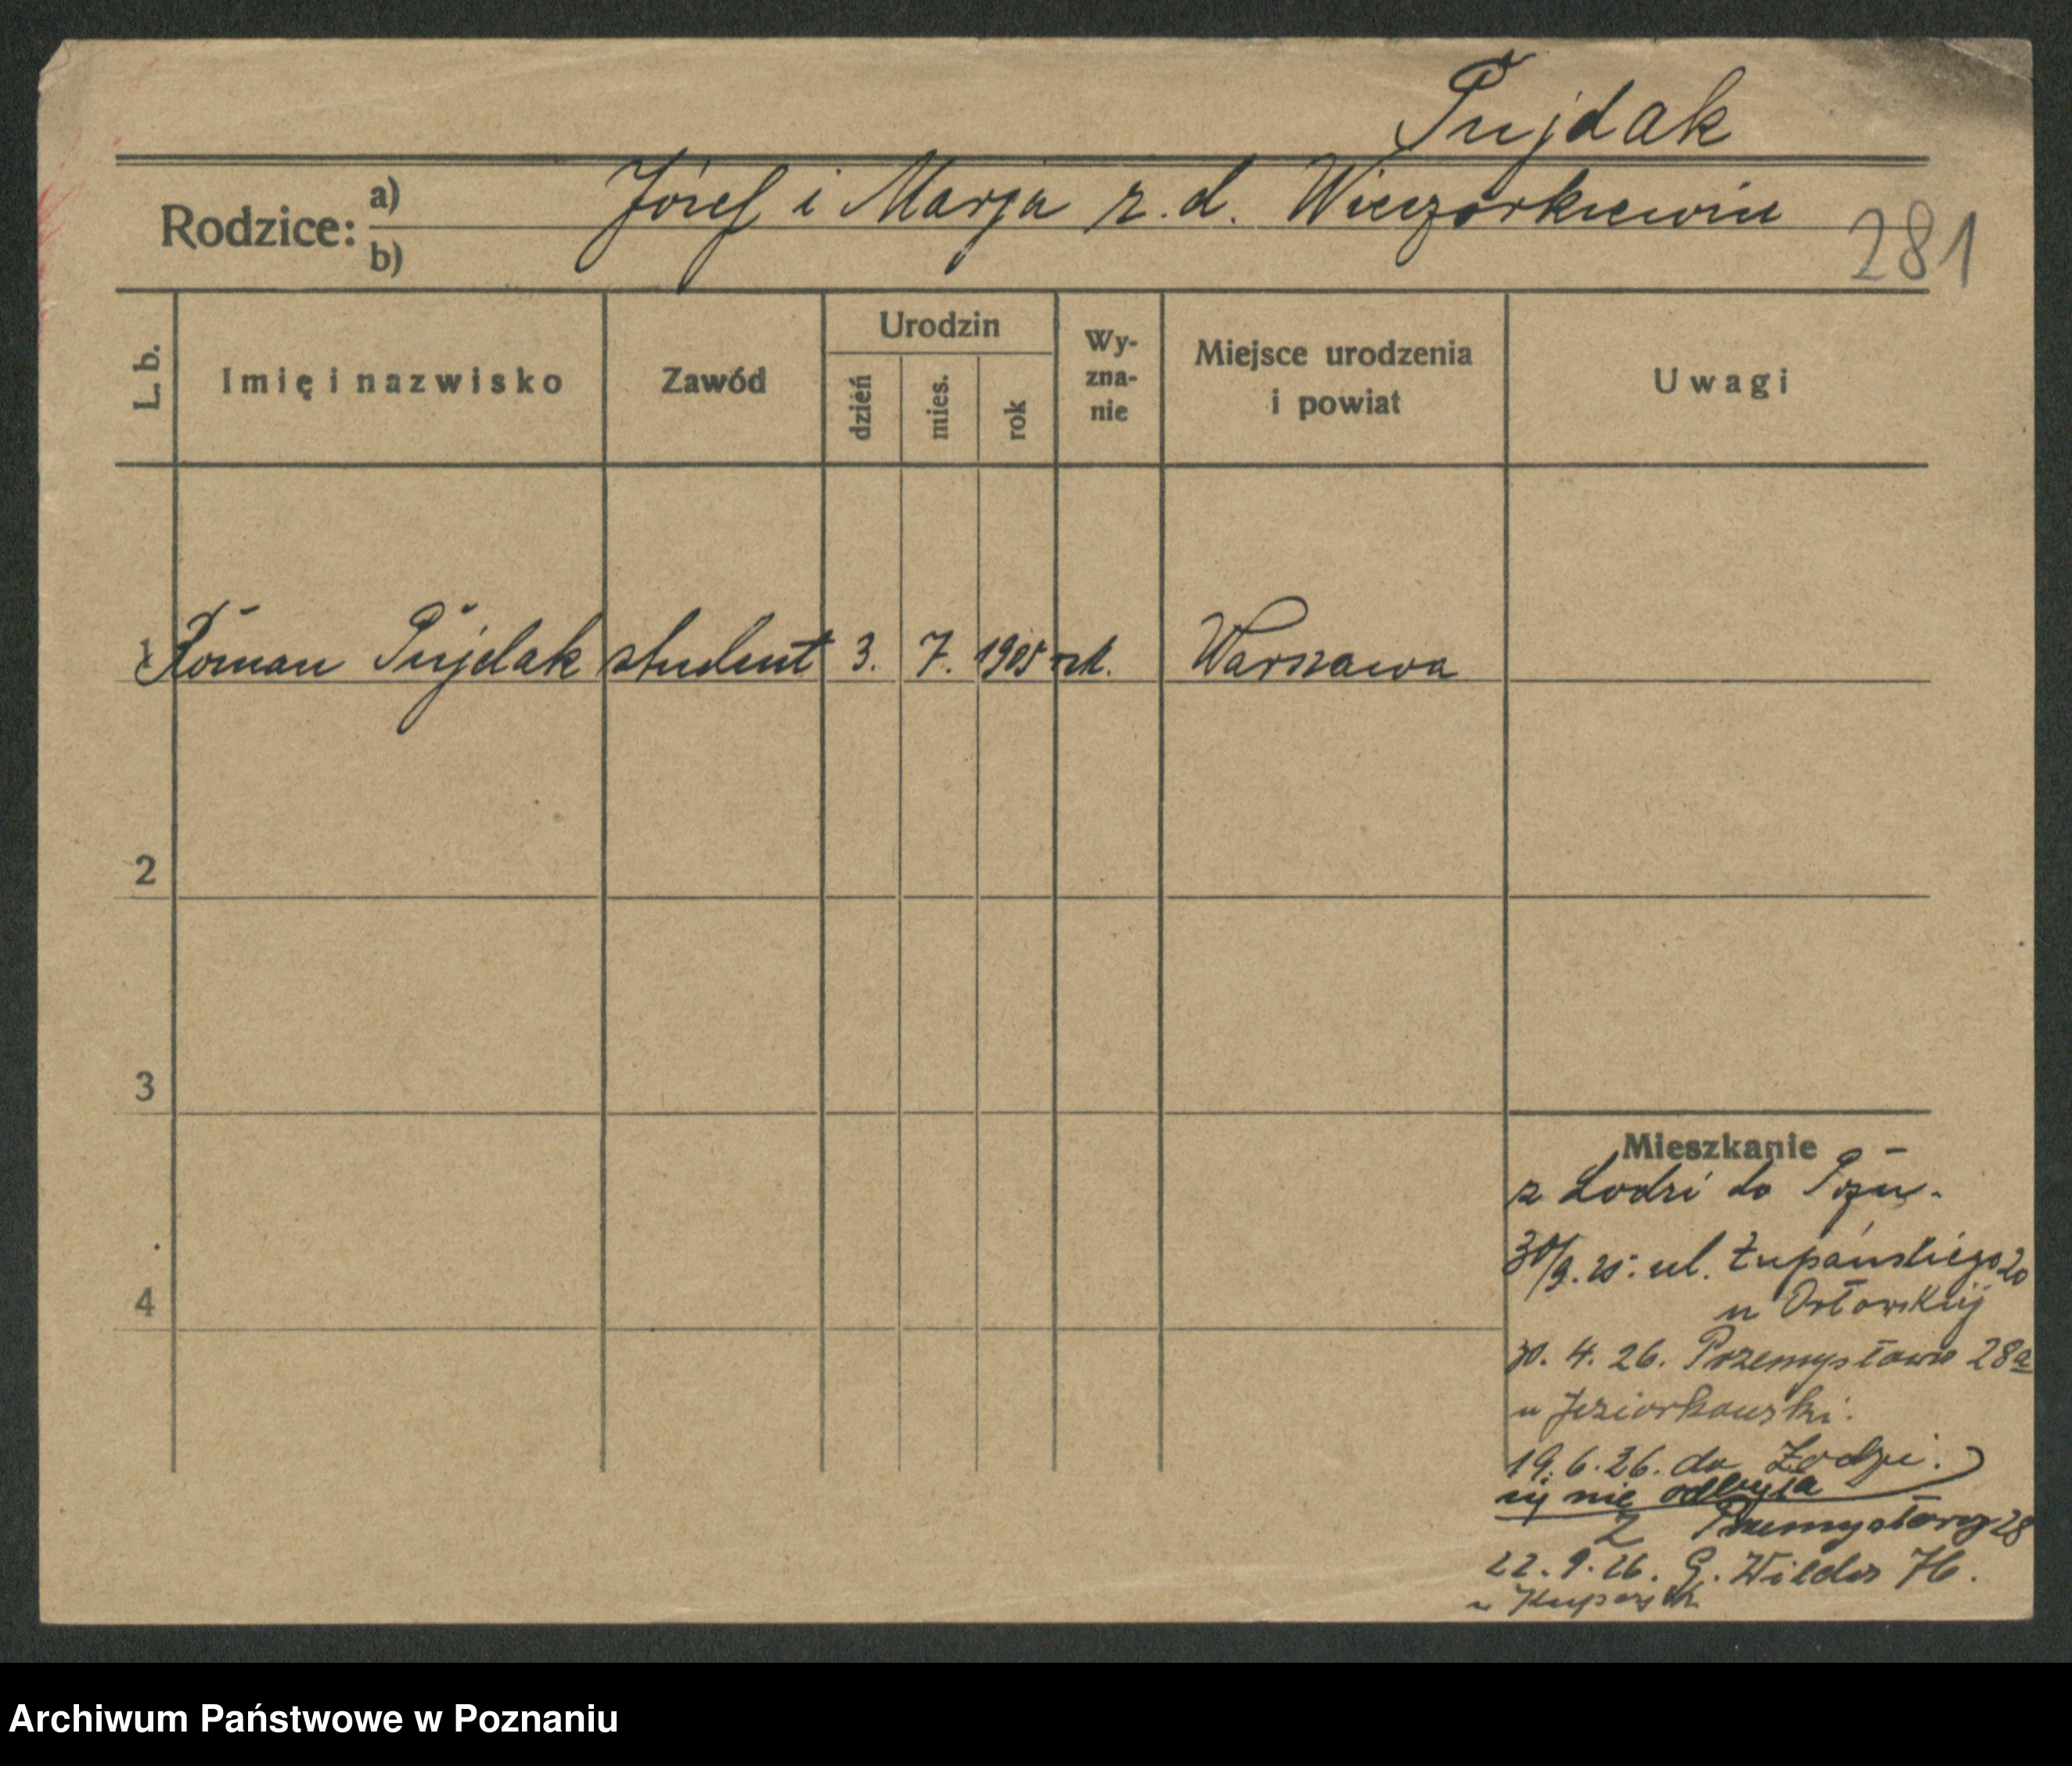 Pujdak
Rodzice: a) Józef i Marja z. d. Wieczorkiewicz
b)
281
L. b.
Imię i nazwisko
Zawód
Urodzin
dzień
mies.
rok
Wy-
zna-
nie
Miejsce urodzenia
i powiat
Uwagi
1 Roman Pujdak student 3. 7. 1905 rk. Warszawa
2
3
4
Mieszkanie
z Lodzi do Pozn.
30/9.25. ul. Łupańskiego 20
u Orłowskiej
30. 4. 26. Przemysłowa 28a
u Jeziorkowski.
19. 6. 26. do Łodzi.
nie odbyła
Z Przemysłowej 28
22. 9. 26. G. Wilda 76.
u
Archiwum Państwowe w Poznaniu